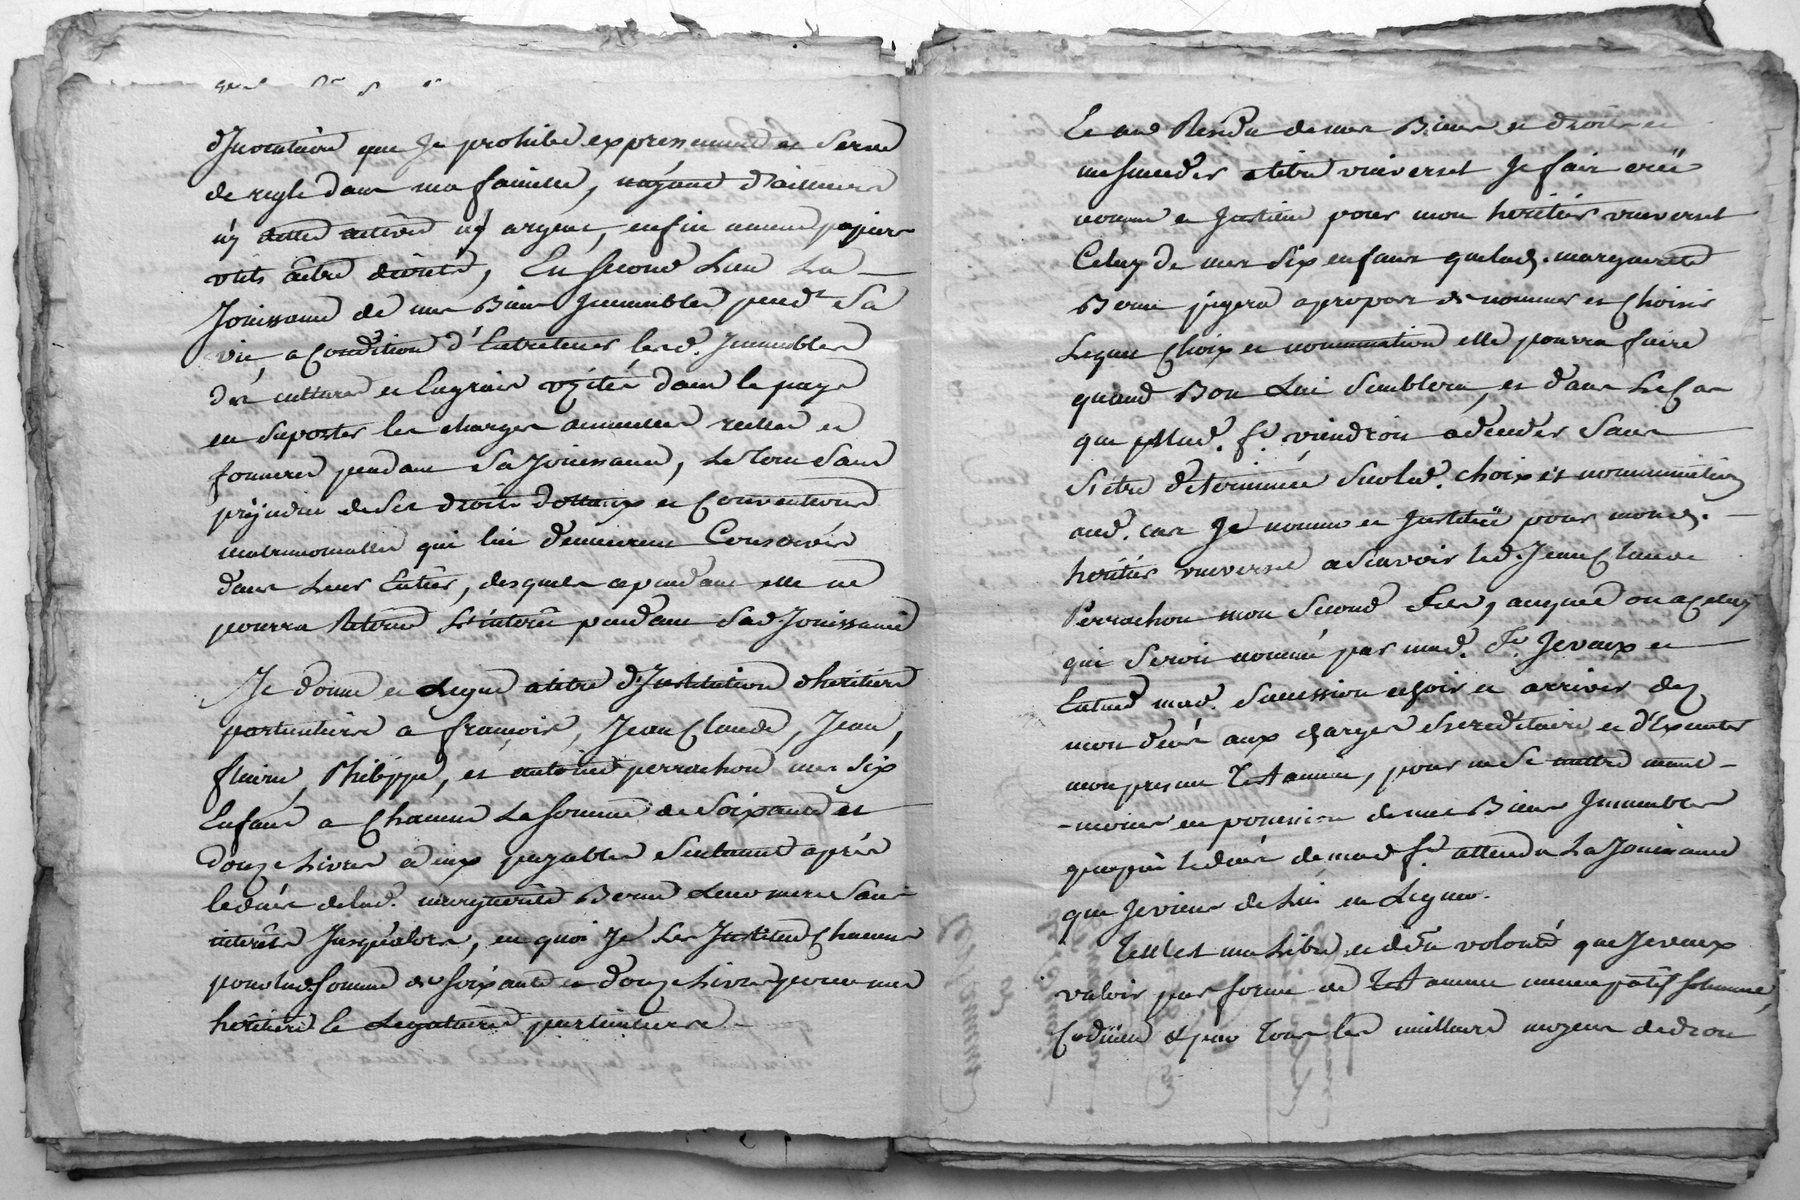 d'Inventaire que je prohibe expressement et serve
de regle dans ma famille, n'ayant d'ailleurs
n'y dette active n'y argent, enfin aucuns papiers
utils a etre décrits, En second Lieu La
Jouissance de mes Biens Immeubles pendt. Sa
vie, a condition d'Entretenir lesd. Immeubles
des cultures et Engrais usités dans le pays
en suporter les charges annuelles réelles et
foncieres pendant Sa Jouissance, Le tout Sans
préjudice de Ses droits dottaux et Conventions
matrimonialles qui lui demeurent Conservés
dans Leur Entier, desquels cependant elle ne
pourra Retirer L'intérêt pendant Sad. Jouissance
Je donne et Legue a titre d'Institution d'heritiers
particuliers a françois, Jean Claude, Jean,
fleurie, Philippe, et antoine perrachon mes Six
Enfans a Chacun La Somme de Soixante et
douze Livres a eux payables Seulement après
le deces de lad. marguerite Berne Leur mere Sans
interets Jusqu'alors, en quoi Je Les Institue Chacun
pour lad. Somme de Soixante et douze Livres pour mes
heritiers et Legataires particuliers.
Et au Residu de mes Biens et droits et
me succeder a titre universel Je fais créé
nomme et Institue pour mon heritier universel
Celuy de mes Six enfans que lad. marguerite
Berne jugera apropos de nommer et Choisir
Lequel Choix et nomination elle pourra faire
quand Bon Lui Semblera, et dans Le Cas
que mad. fe. viendroit a déceder Sans
S'etre determinée Sur led. choix et nomination
aud. cas Je nomme et Institue pour mond.
heritier universel a Scavoir led. Jean Claude
Perrachon mon Second fils, auquel ou a Celuy
qui Seroit nommé par mad. fe. Je veux et
Entend mad. Succession echoir et arriver dez
mon deces aux charges hereditaires et d'Executer
mon present Testament, pour ne Se mettre neant-
-moins en possession de mes Biens Immeubles
qu'apres le deces de mad. fe. attendu La Jouissance
que Je viens de Lui en Leguer.
Telle est ma Libre et dere. volonté que Je veux
valoir par forme de Testament nuncupatif solemnel,
Codicile et par tous les meilleurs moyens de droit